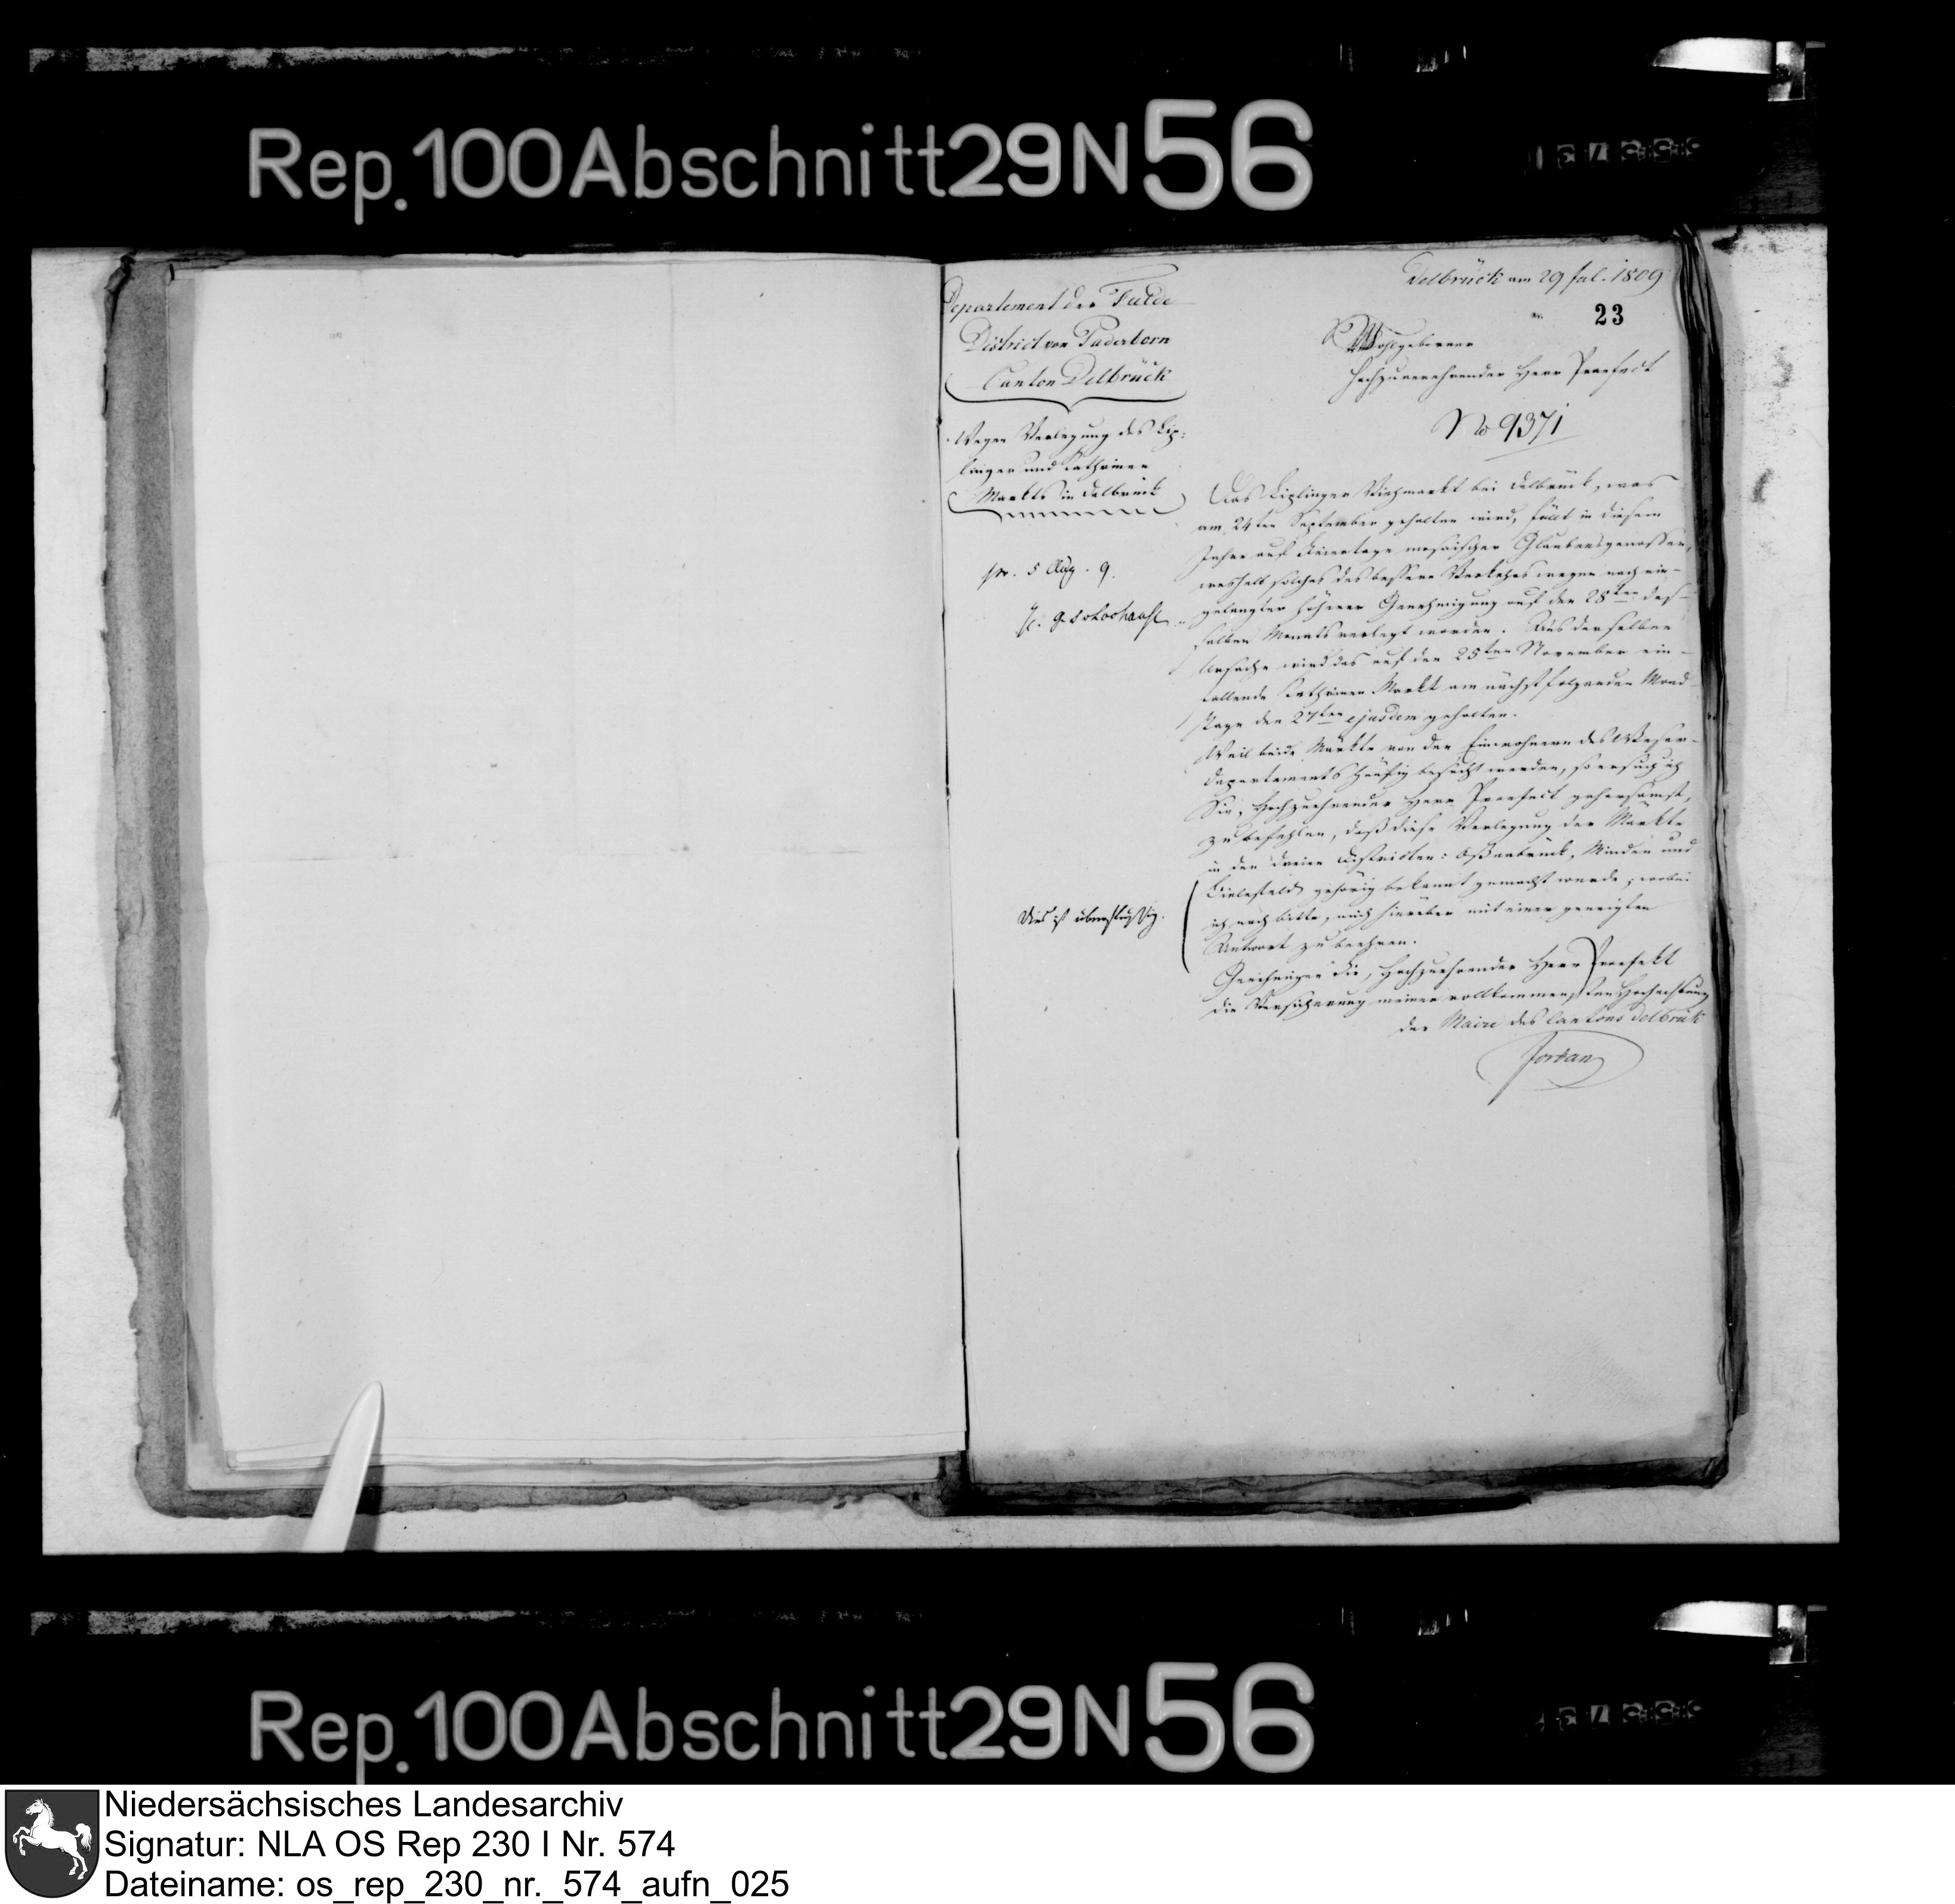 Rep. 100 Abschnitt 29 N 56
Departement der Fulde
District von Paderborn
Canton Delbrück
Wegen Verlegung des Lip-
linger und Cathrinen
Markts in Delbrück
pr. 5 Aug. 9.
Delbrück am 29 Jul. 1809
23
Wohlgeborner
Hochzuverehrender Herr Praefect
No 9371
Das Liplinger Viehmarkt bei Delbrück, was
am 24ten September gehalten wird, fällt in diesem
Jahre auf Feiertage mosaischer Glaubensgenossen,
weshalb solches des bessern Verkehrs wegen nach ein-
gelangter höherer Genehmigung auf den 28ten des-
selben Monats verlegt worden. Aus derselben
Ursache wird das auf den 25ten November ein-
fallende Cathrinen Markt am nächstfolgenden Mond-
tage den 27ten ejusdem gehalten.
Weil beide Märkte von den Einwohnern des Weser-
departements häufig besucht werden, so ersuch ich
Sie, Hochzuehrender Herr Praefect gehorsamst,
zu befehlen, daß diese Verlegung der Märkte
in den dreien Districten: Oßnabrück, Minden und
Bielefeld gehörig bekannt gemacht werde; wobei
ich noch bitte, mich hierüber mit einer geneigten
Antwort zu beehren.
Dies ist überflüssig.
Genehmigen Sie, Hochzuehrender Herr Praefekt
die Versicherung meiner vollkommensten Hochachtung
der Maire des Cantons Delbrük
Jordan
Rep. 100 Abschnitt 29 N 56
Niedersächsisches Landesarchiv
Signatur: NLA OS Rep 230 I Nr. 574
Dateiname: os_rep_230_nr._574_aufn_025